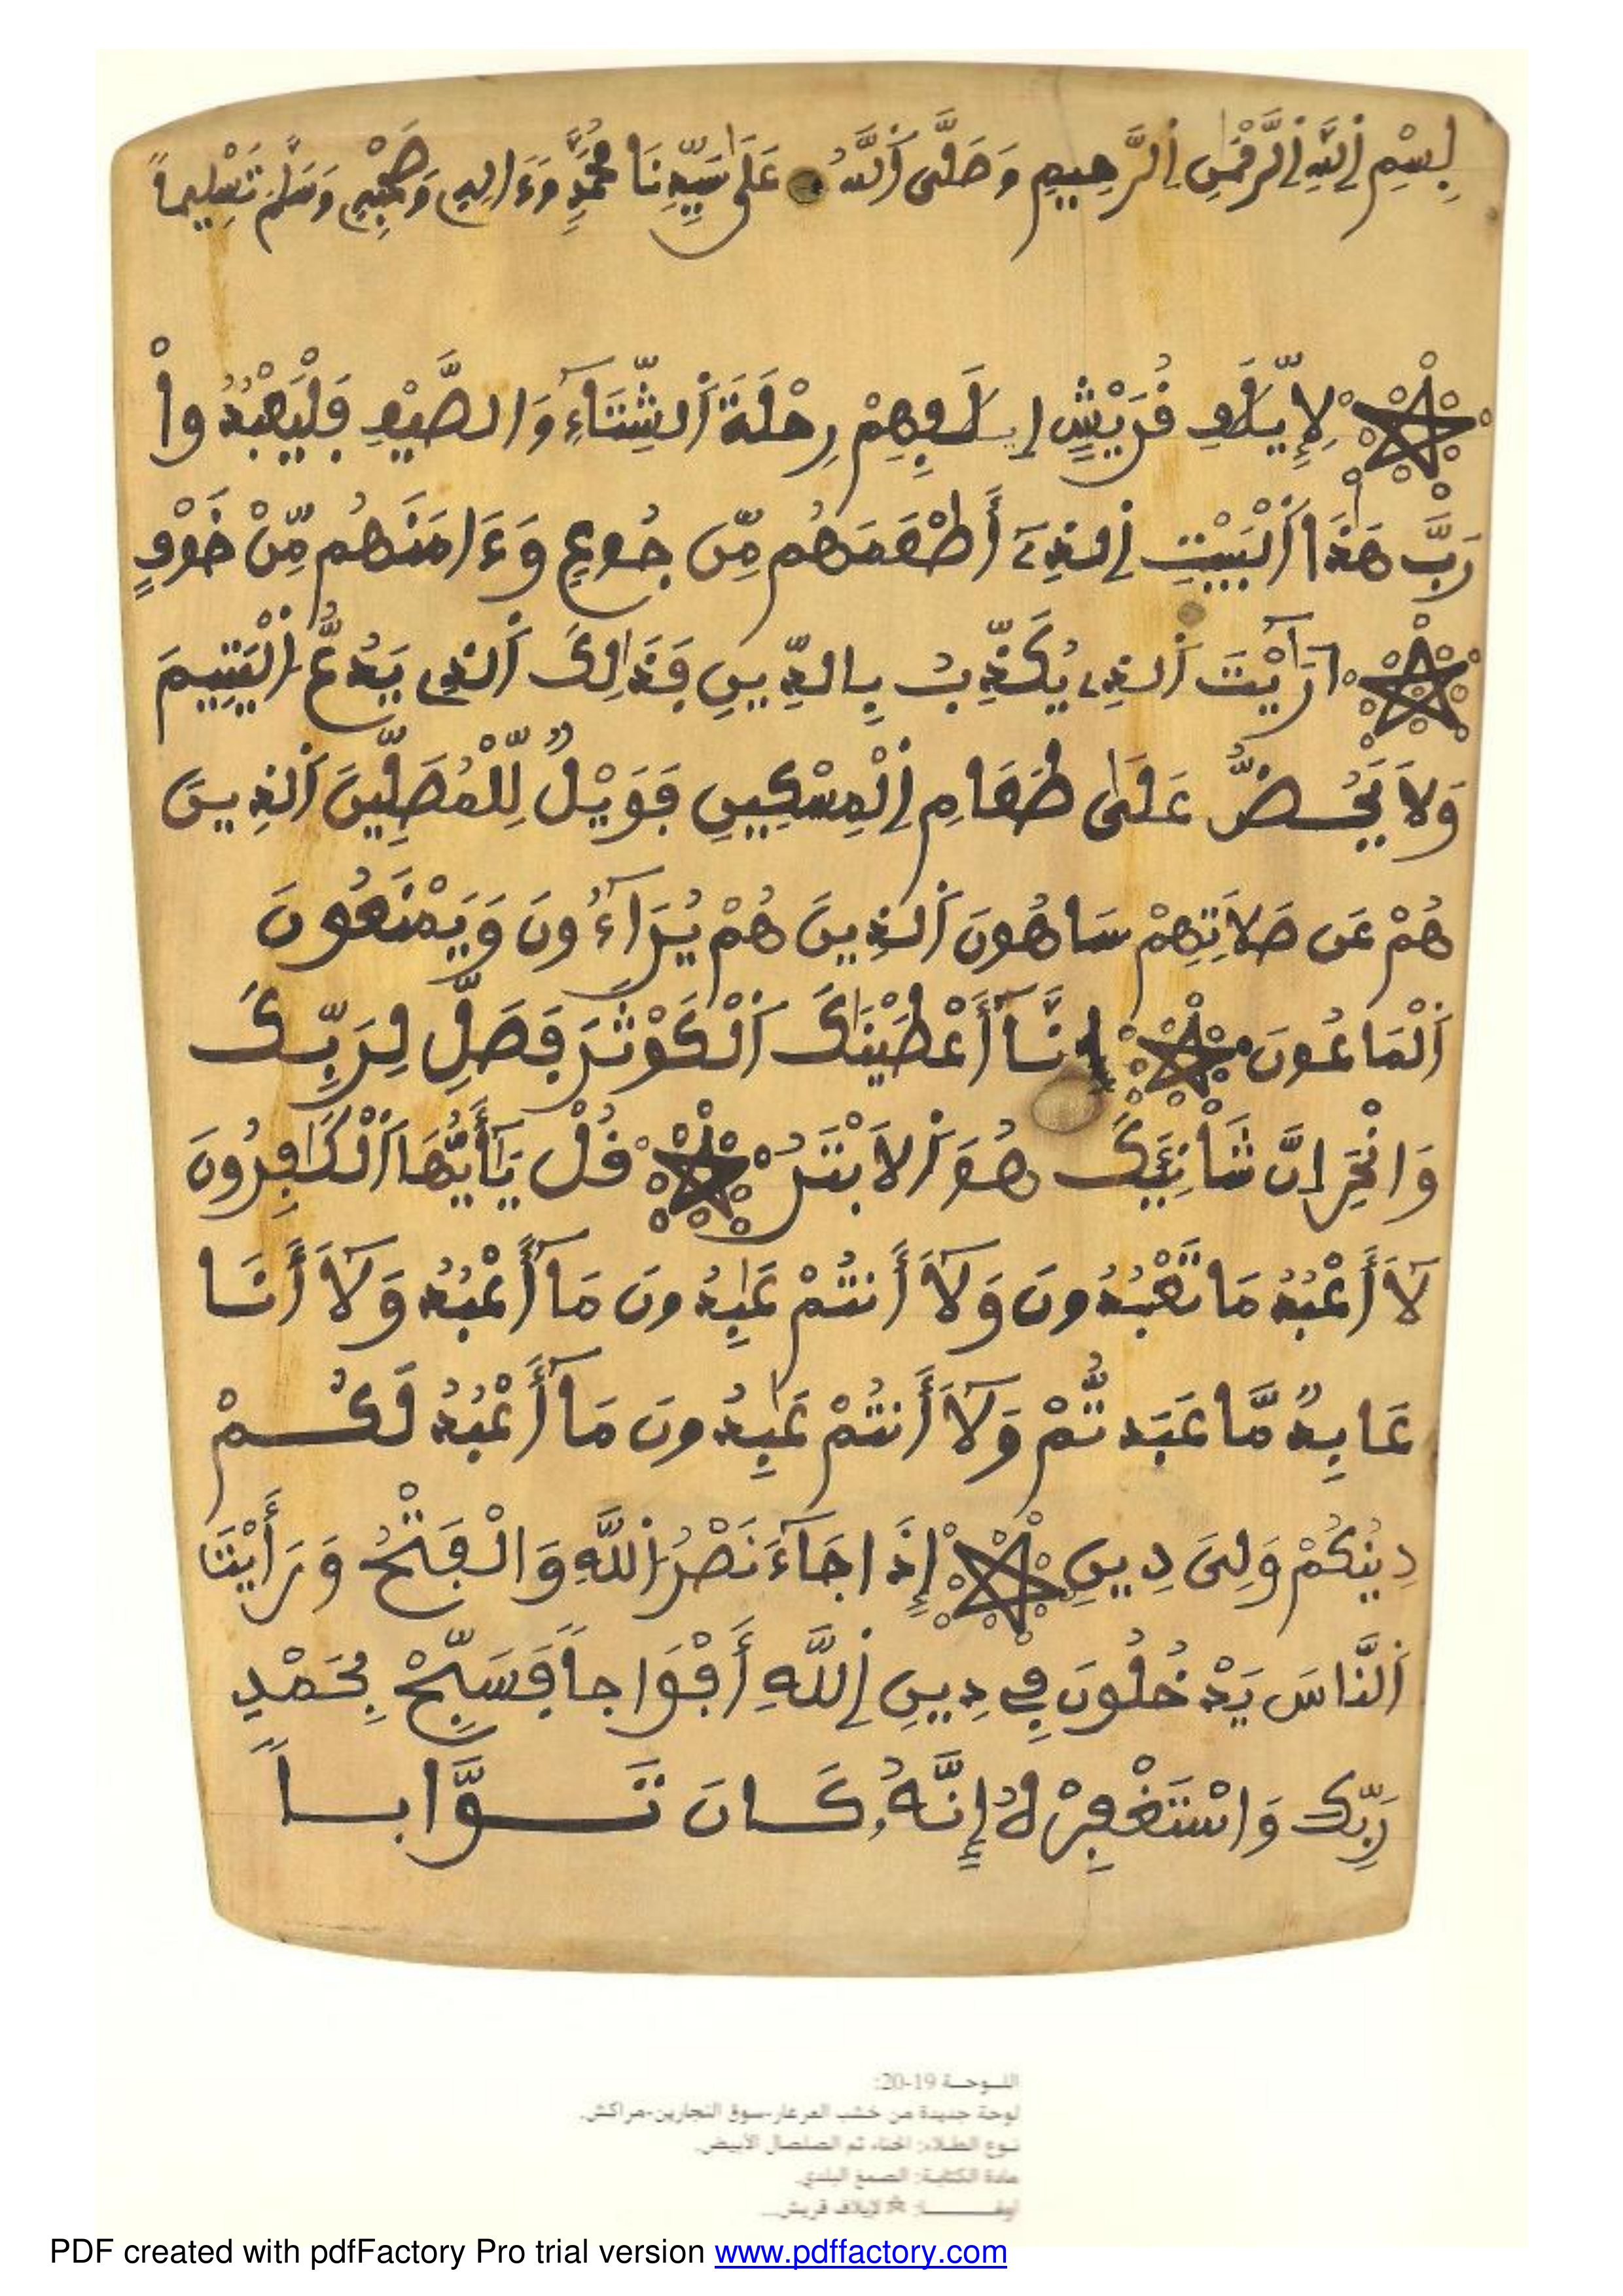 بِسْمِ اِ۬للَّهِ اِ۬لرَّحْمَٰنِ اِ۬لرَّحِيمِ وَصَلَّى اَ۬للَّهُ عَلَىٰ سَيِّدِنَا مُحَمَّدٍ وَءَالِهِ وَصَحْبِهِ وَسَلَّمَ تَسْلِيماً
لِإِيلَٰفِ قُرَيْشٍ اِۦلَٰفِهِمْ رِحْلَةَ اَ۬لشِّتَآءِ وَالصَّيْفِ فَلْيَعْبُدُواْ
رَبَّ هَٰذَا اَ۬لْبَيْتِ اِ۬لذِےٓ أَطْعَمَهُم مِّن جُوعٍ وَءَامَنَهُم مِّنْ خَوْفٍ
اَرَٰٓيْتَ اَ۬لذِے يُكَذِّبُ بِالدِّينِ فَذَٰلِكَ اَ۬لذِے يَدُعُّ اُ۬لْيَتِيمَ
وَلَا يَحُضُّ عَلَىٰ طَعَامِ اِ۬لْمِسْكِينِ فَوَيْلٌ لِّلْمُصَلِّينَ اَ۬لذِينَ
هُمْ عَن صَلَاتِهِمْ سَاهُونَ اَ۬لذِينَ هُمْ يُرَآءُونَ وَيَمْنَعُونَ
اَ۬لْمَاعُونَ إِنَّآ أَعْطَيْنَٰكَ اَ۬لْكَوْثَرَ فَصَلِّ لِرَبِّكَ
وَانْحَرِ اِنَّ شَانِئَكَ هُوَ اَ۬لَابْتَرُ قُلْ يَٰٓأَيُّهَا اَ۬لْكَٰفِرُونَ
لَآ أَعْبُدُ مَا تَعْبُدُونَ وَلَآ أَنتُمْ عَٰبِدُونَ مَآ أَعْبُدُ وَلَآ أَنَا
عَابِدٌ مَّا عَبَدتُّمْ وَلَآ أَنتُمْ عَٰبِدُونَ مَآ أَعْبُدُ لَكُمْ
دِينُكُمْ وَلِىَ دِينِ إِذَا جَآءَ نَصْرُ اُ۬للَّهِ وَالْفَتْحُ وَرَأَيْتَ
اَ۬لنَّاسَ يَدْخُلُونَ فِے دِينِ اِ۬للَّهِ أَفْوَاجاً فَسَبِّحْ بِحَمْدِ
رَبِّكَ وَاسْتَغْفِرْهُ إِنَّهُۥ كَانَ تَوَّاباً
اللـوحـة 19-20:
لوحة جديدة من خشب العرعار-سوق النجارين-مراكش.
نـوع الطـلاء: الحناء ثم الصلصال الأبيض.
مادة الكتابـة: الصمغ البلدي.
لإيلاف قريش...
PDF created with pdfFactory Pro trial version www.pdffactory.com